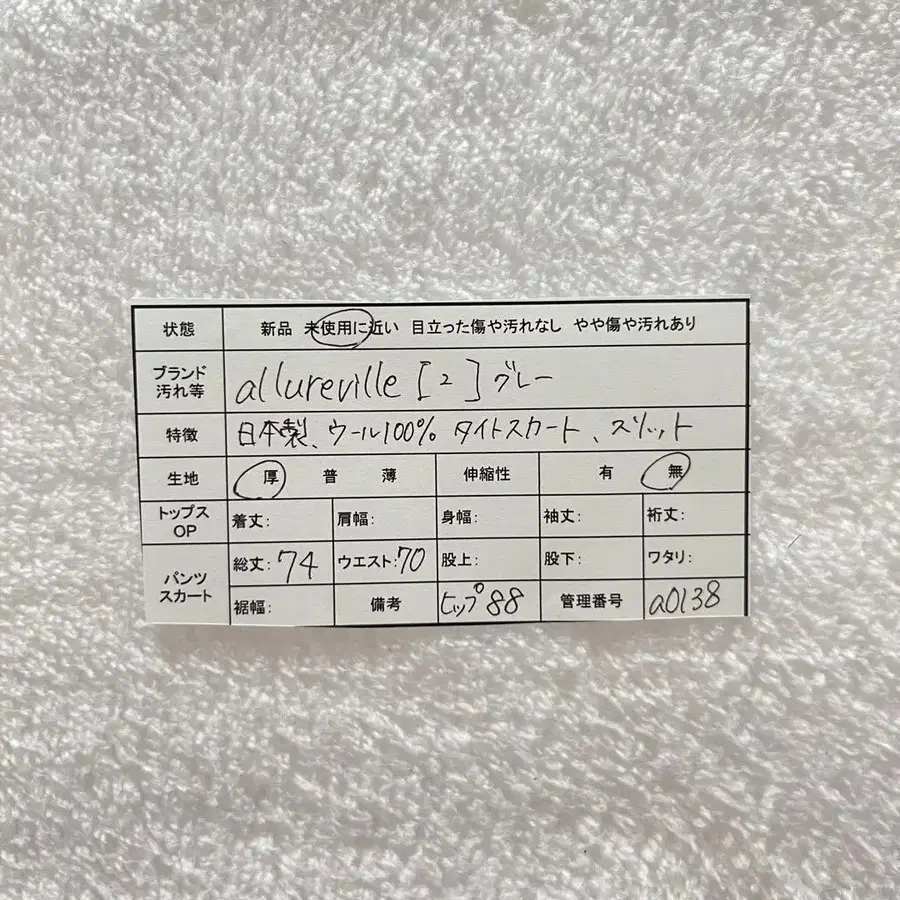 状態 新品 未使用に近い 目立った傷や汚れなし やや傷や汚れあり
ブランド
汚れ等 allureville [2] グレー
特徴 日本製、ウール100% タイトスカート、スリット
生地 厚 普 薄 伸縮性 有 無
トップス
OP 着丈: 肩幅: 身幅: 袖丈: 裄丈:
パンツ
スカート 総丈: 74 ウエスト: 70 股上: 股下: ワタリ:
裾幅: 備考 ヒップ 88 管理番号 a0138